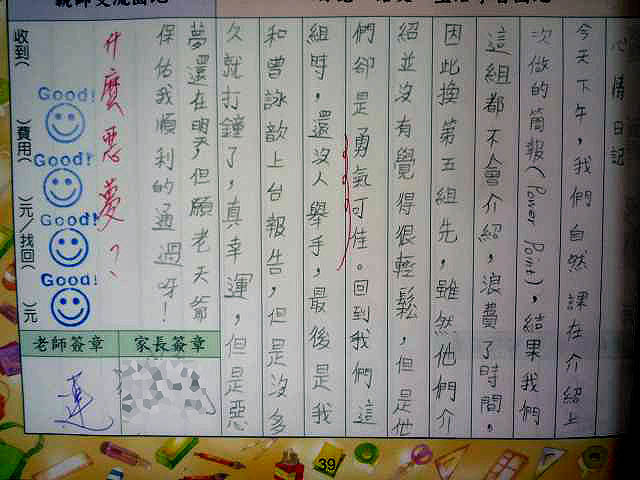 心情日記
今天下午，我們自然課在介紹上
次做的簡報(Power Point)，結果我們
這組都不會介紹，浪費了時間。
因此換第五組先，雖然他們介
紹並沒有覺得很輕鬆，但是他
們卻是勇氣可佳。回到我們這
組時，還沒人舉手，最後是我
和曾詠歆上台報告，但是沒多
久就打鐘了，真幸運，但是惡
夢還在，但願老天爺
保佑我順利的通過呀！
什麼惡夢？
Good!
Good!
Good!
Good!
收到( )費用( )元/找回( )元
家長簽章
老師簽章
蓮
39